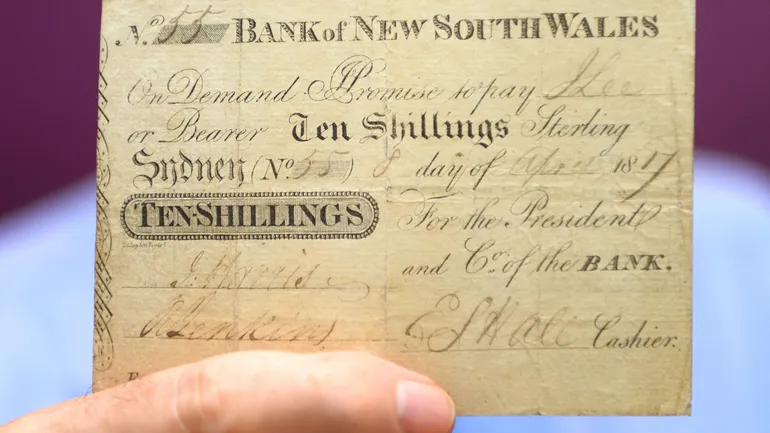 No. 55 BANK of NEW SOUTH WALES
On Demand I Promise to pay J Lee
or Bearer Ten Shillings Sterling
Sydney (No. 55) 8 day of April 1817
TEN·SHILLINGS
For the President
and Co. of the BANK.
J. Harris
R Jenkins
E S Hall Cashier.